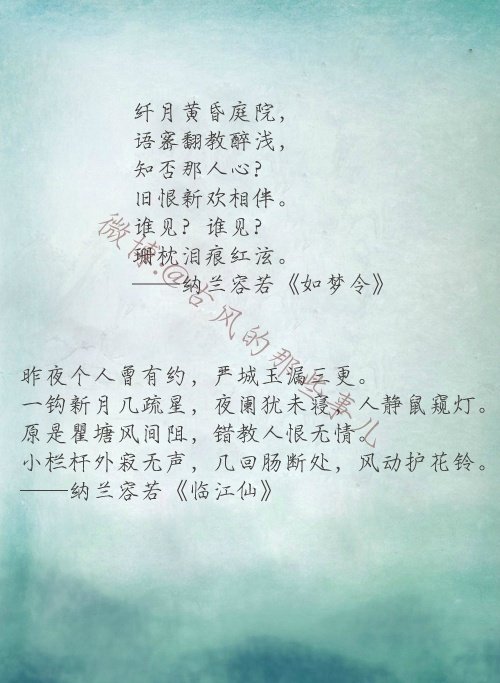 纤月黄昏庭院，
语密翻教醉浅，
知否那人心？
旧恨新欢相伴。
谁见？谁见？
珊枕泪痕红泫。
——纳兰容若《如梦令》
昨夜个人曾有约，严城玉漏三更。
一钩新月几疏星，夜阑犹未寝，人静鼠窥灯。
原是瞿塘风间阻，错教人恨无情。
小栏杆外寂无声，几回肠断处，风动护花铃。
——纳兰容若《临江仙》
微博:@古风的那些事儿